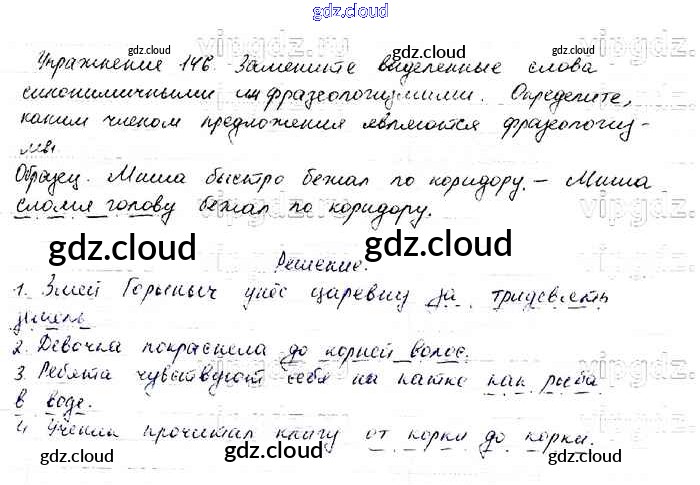 gdz.cloud
Упражнение 146. Замените выделенные слова
синонимичными им фразеологизмами. Определите,
каким членом предложения являются фразеологиз-
мы.
Образец. Миша быстро бежал по коридору. – Миша
сломя голову бежал по коридору.
gdz.cloud gdz.cloud
Решение.
1. Змей Горыныч унёс царевну за тридевять
земель
2. Девочка покраснела до корней волос.
3. Ребята чувствуют себя на катке как рыба
в воде.
4. Ученик прочитал книгу от корки до корки.
gdz.cloud gdz.cloud gdz.cloud